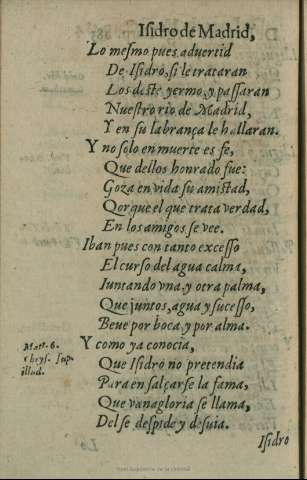 Isidro de Madrid,
Lo mesmo pues aduertid
De Isidro, si le trataran
Los deste yermo, y passaran
Nuestro rio de Madrid,
Y en su labrança le hallaran.
Y no solo en muerte es fe,
Que dellos honrado fue:
Goza en vida su amistad,
Qorque el que trata verdad,
En los amigos se vee.
Iban pues con tanto excesso
El curso del agua calma,
Iuntando vna, y otra palma,
Que juntos, agua y sucesso,
Beue por boca, y por alma.
Matt. 6.
Chrys. sup.
illud.
Y como ya conocia,
Que Isidro no pretendia
Para ensalçarse la fama,
Que vanagloria se llama,
Del se despide y desuia.
Isidro